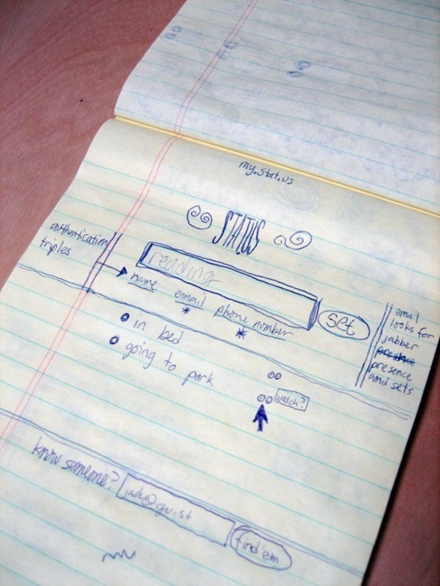 my.stat.us
STATUS
authentication
triples
reading
set
name
email
phone number
in bed
going to park
watch?
email
looks for
jabber
presence
and sets
know someone?
find 'em